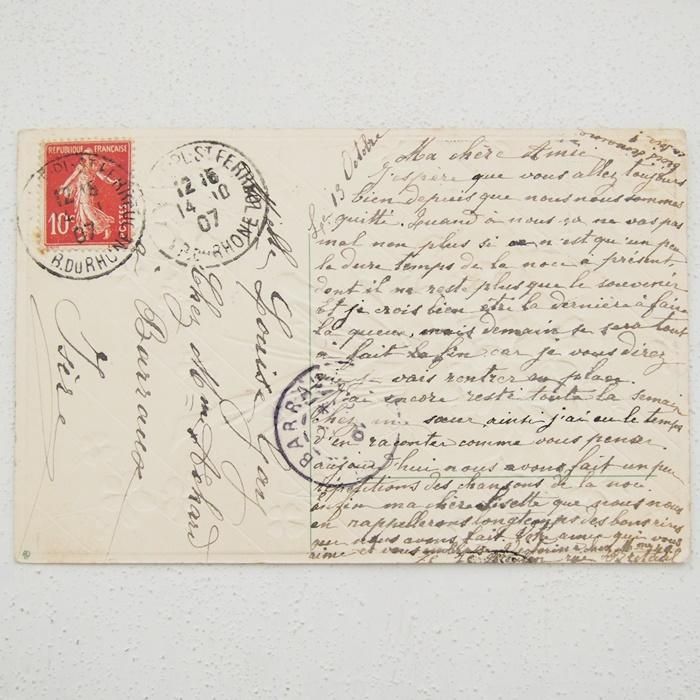 REPUBLIQUE FRANÇAISE
10c
POSTES
12 15
07
R.DU RHONE
PL. ST FERREOL
12 15
14 10
07
B.DU RHONE
Mlle Louise Gay
Chez Mme Achard
à Barraux
Isère
BARRAUX
Le 13 Octobre
Ma chère Amie
J'espère que vous allez toujours
bien depuis que nous nous sommes
quitté. Quand à nous ça ne vas pas
mal non plus si ce n'est qu'un peu
le dure temps de la noce à présent,
dont il ne reste plus que le souvenir
Et je crois bien être la dernière à faire
la queue, mais demain se sera tout
à fait la fin car je vous direz
que je vais rentrer en place.
J'ai encore resté toute la semain
chez ma sœur ainsi j'ai eu le temps
d'en raconter comme vous penser
aujourd'hui nous avons fait un peu
répétitions des chansons de la noce
enfin ma chère Lisette que nous nous
en rappellerons longtemps des bons rires
que nous avons fait. Votre amie qui vous
aime et vous
chez Mme
rue